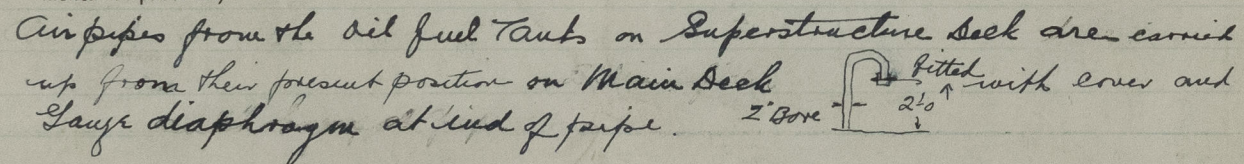 Air pipes from the Oil fuel Tanks on Superstructure Deck are carried
up from their present position on Main Deck fitted with cover and
Gauze diaphragm at end of pipe. 2" Bore 2'-0"